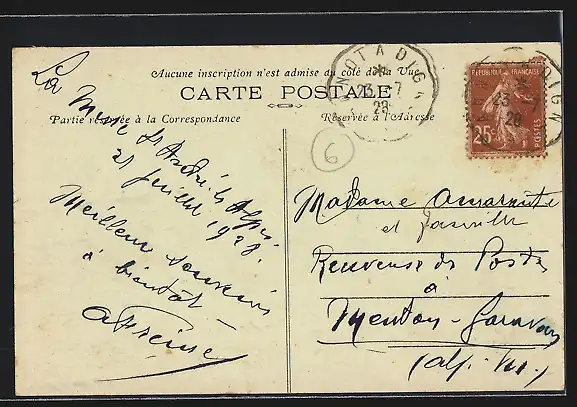 Aucune inscription n'est admise du côté de la Vue
CARTE POSTALE
Partie réservée à la Correspondance
Réservée à l'Adresse
La Mure St André les Alpes
21 juillet 1928.
Meilleurs souvenirs
à bientôt -
6
NOTADIGN
23 - 7
28
RÉPUBLIQUE FRANÇAISE
25c
POSTES
23 7
28
Madame
et famille
Receveuse des Postes
à
Menton-Garavan
(Alp. Mar.)